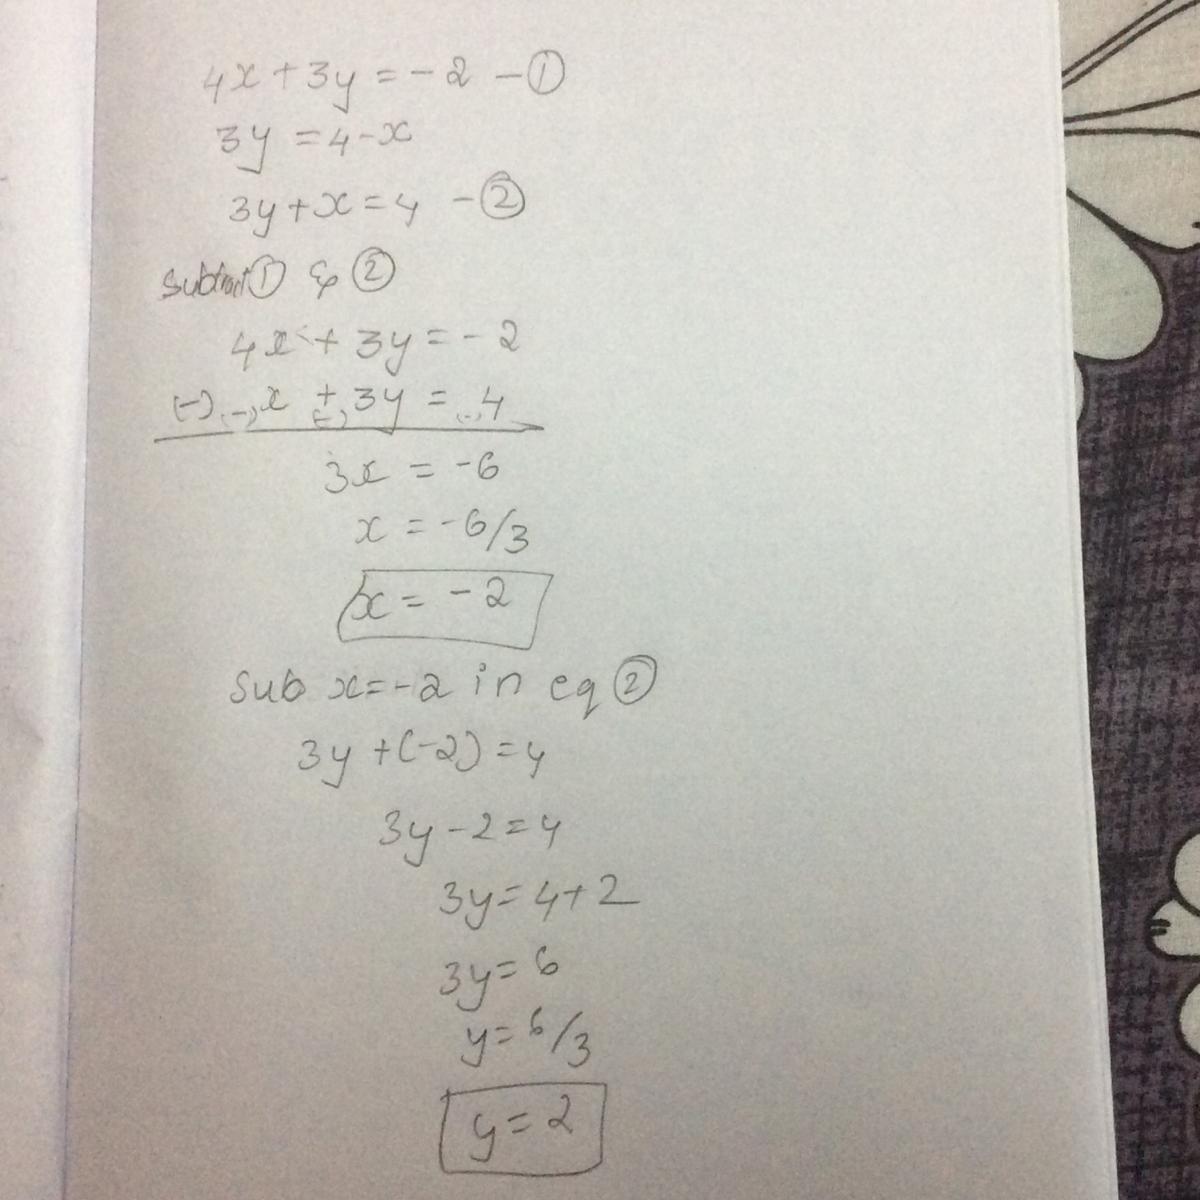 4x + 3y = - 2 - ①
3y = 4 - x
3y + x = 4 - ②
subtract ① & ②
4x + 3y = - 2
(-) (-) x + (-) 3y = (-) 4
3x = -6
x = -6/3
x = - 2
sub x = -2 in eq ②
3y + (-2) = 4
3y - 2 = 4
3y = 4 + 2
3y = 6
y = 6/3
y = 2